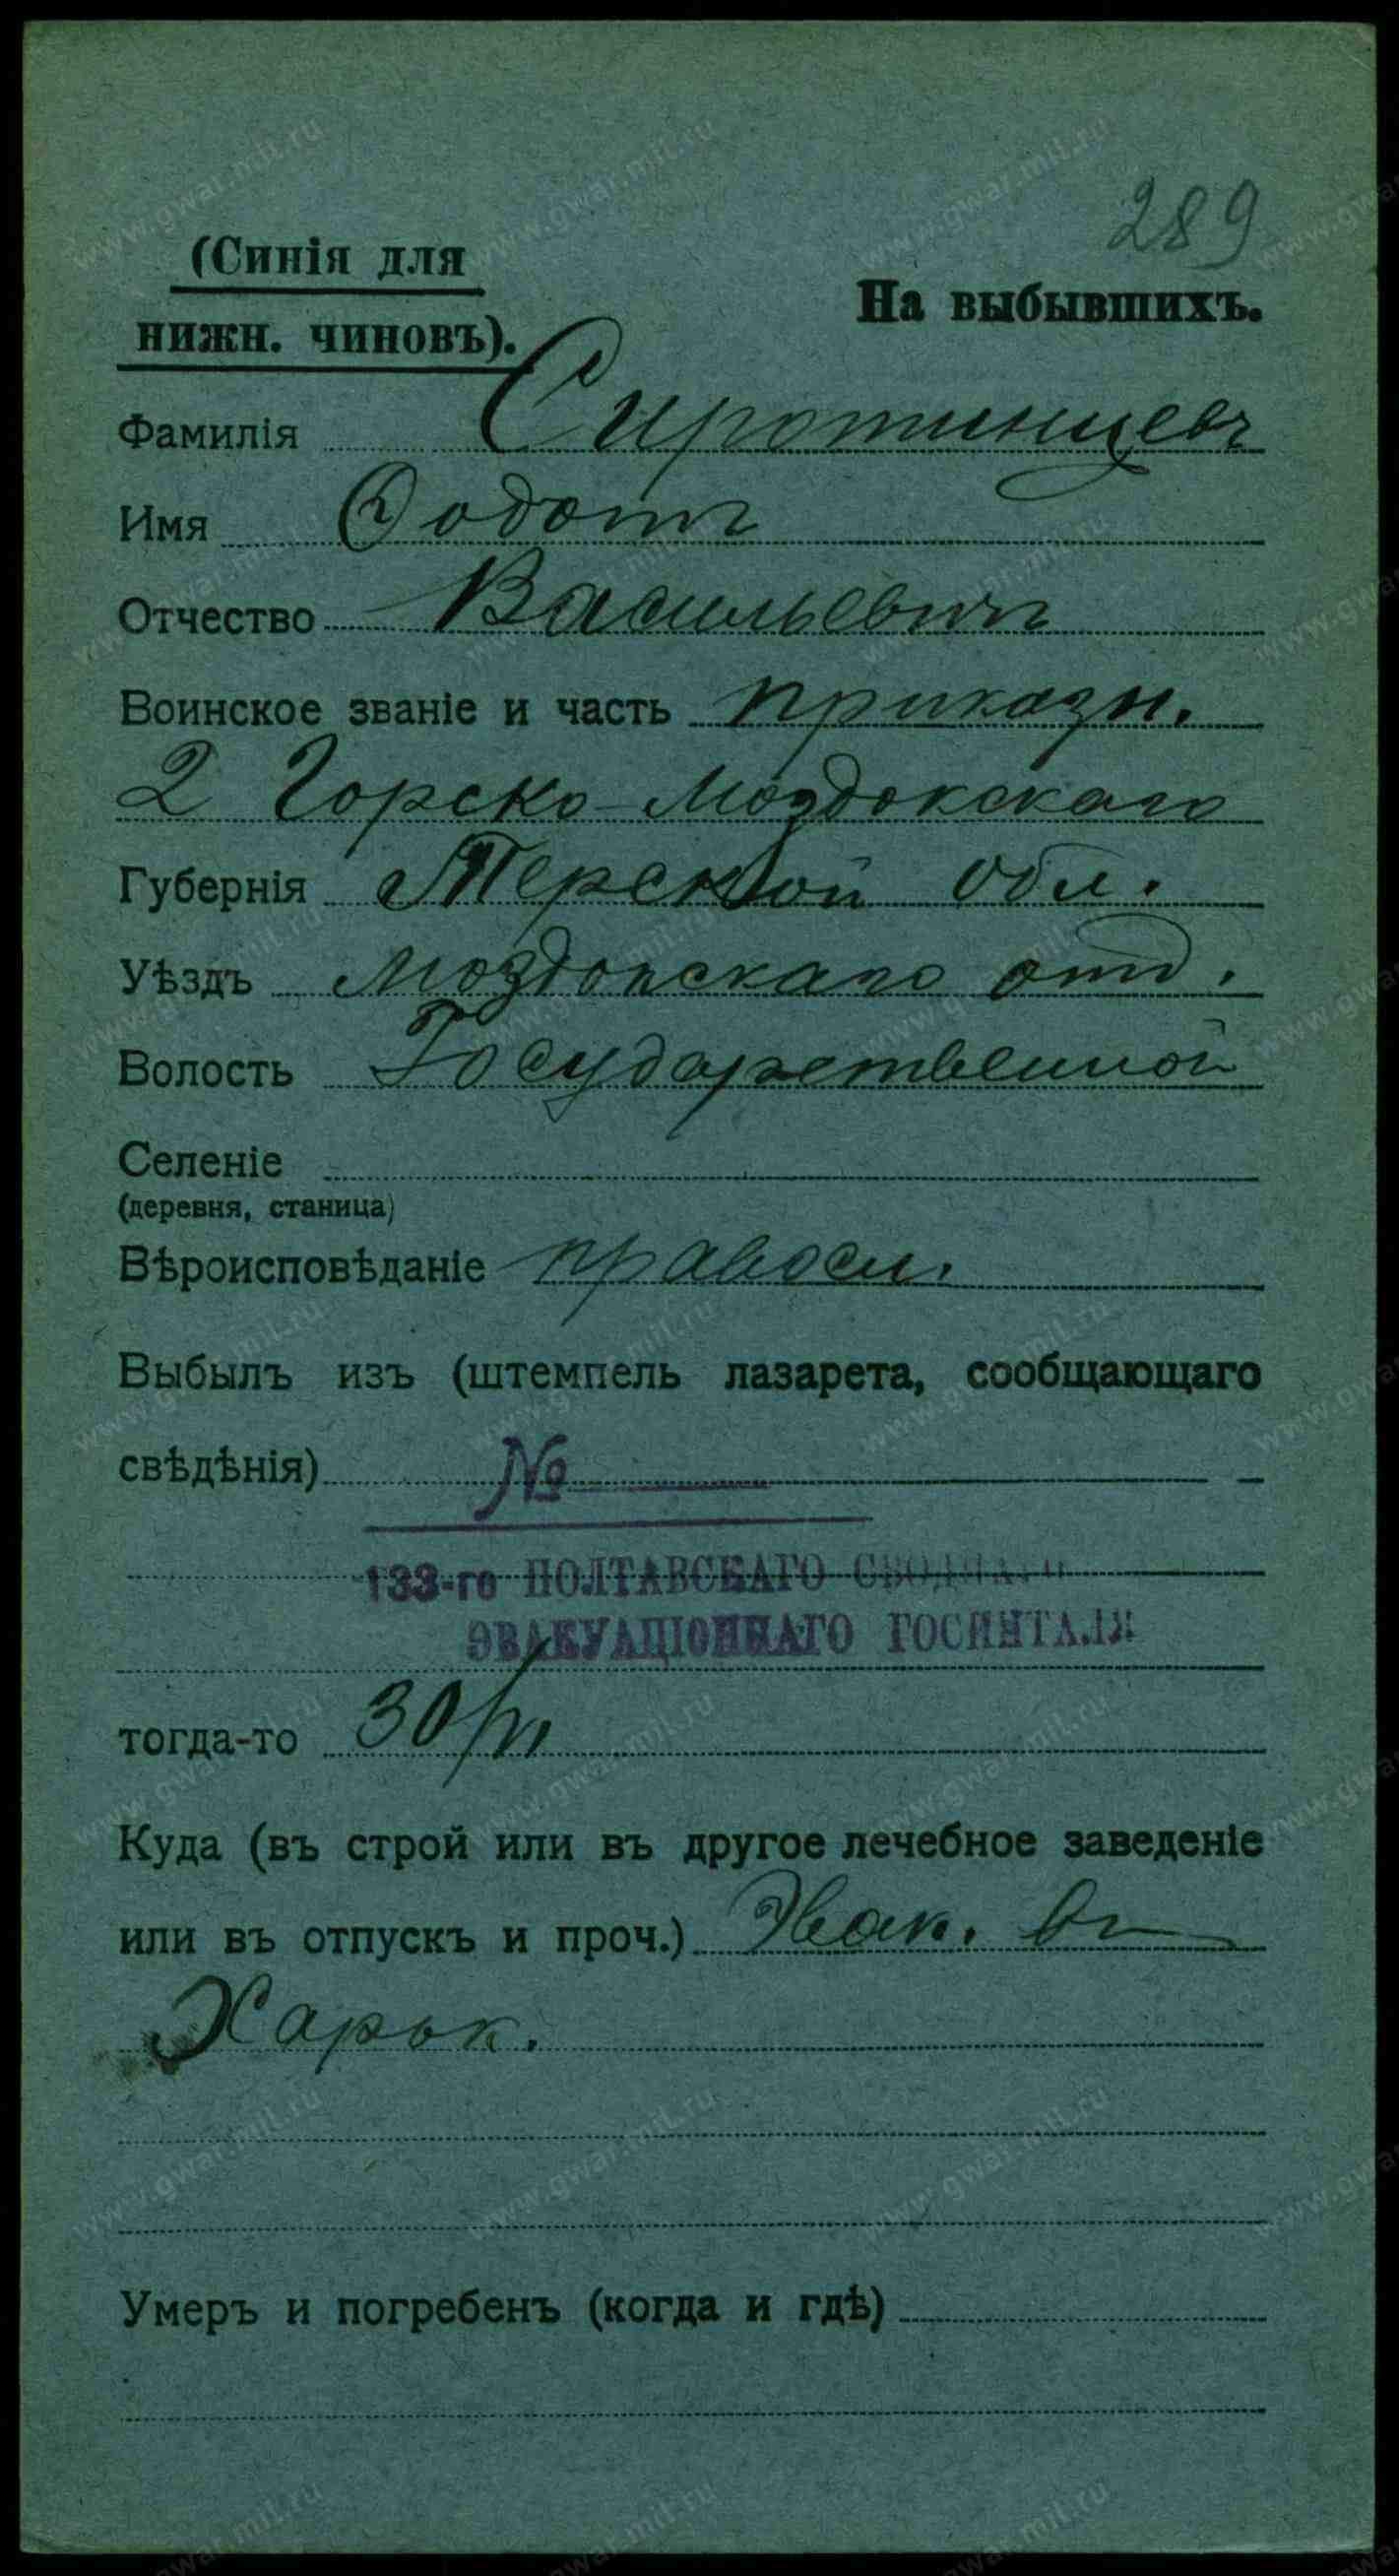 289
(Синія для
нижн. чиновъ).
На выбывшихъ.
Фамилія Сиротинцевъ
Имя Ѳодотъ
Отчество Васильевичъ
Воинское званіе и часть приказн.
2 Горско-Моздокскаго
Губернія Терской обл.
Уѣздъ Моздокскаго отд.
Волость Государственной
Селеніе
(деревня, станица)
Вѣроисповѣданіе правосл.
Выбылъ изъ (штемпель лазарета, сообщающаго
свѣдѣнія) №
133-го ПОЛТАВСКАГО СВОДНАГО
ЭВАКУАЦІОННАГО ГОСПИТАЛЯ
тогда-то 30/VI
Куда (въ строй или въ другое лечебное заведеніе
или въ отпускъ и проч.) Эвак. въ
Харьк.
Умеръ и погребенъ (когда и гдѣ)
www.gwar.mil.ru